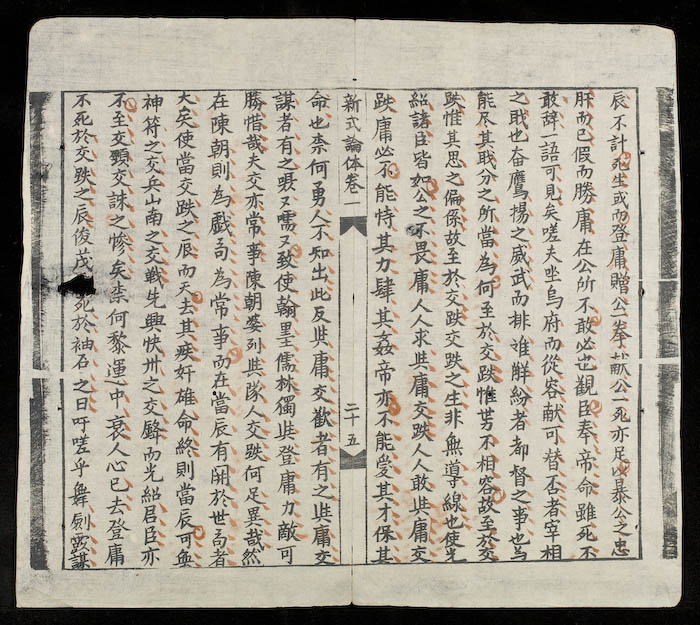 辰不計死生或而登庸贈公一拳献公一死亦足以暴公之忠
肝而已假而勝庸在公所不敢必也覌臣奉帝命雖死不
敢辞一語可見矣嗟夫坐烏府而從容献可替否者宰相
之戝也奋鷹揚之威武而排难觧紛者都督之事也各
能尽其戝分之所當為何至於交跌惟势不相容故至於交
跌惟其思之偏係故至於交跌交跌之生非無導線也使光
紹諸臣皆如公之不畏庸人人求與庸交跌人人敢與庸交
跌庸必不能恃其力肆其姦帝亦不能爱其才保其
新式論体卷一
二十五
命也柰何勇人不知出此反與庸交歡者有之與庸交
謀者有之嗫又嚅又致使翰墨儒林獨與登庸力敵可
勝惜哉夫交亦常事陳朝婆列與隊人交跌何足異哉然
在陳朝則為戲局為常事而在當辰有関於世局者
大矣使當交跌之辰而天去其疾奸雄命終則當辰可免
神符之交兵山南之交戦先興快州之交鋒而光紹君臣亦
不至交頸交誅之惨矣柰何黎運中衰人心已去登庸
不死於交跌之辰俊茂死於袖石之日吁嗟乎舞劍露謀